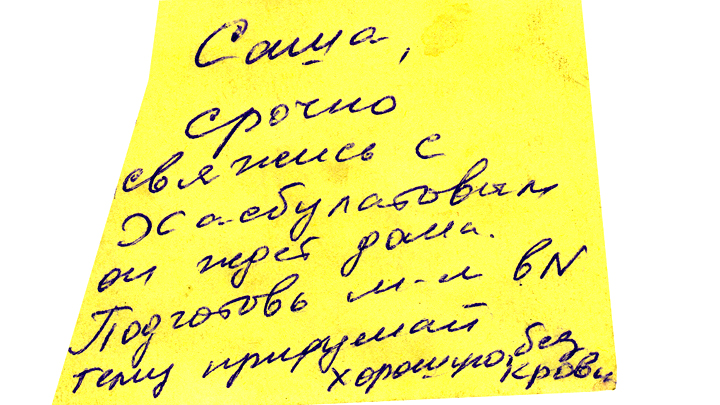 Саша,
срочно
свяжись с
Хасбулатовым
он ждет дома.
Подготовь м-л в N
тему придумай
хорошую, без
крови